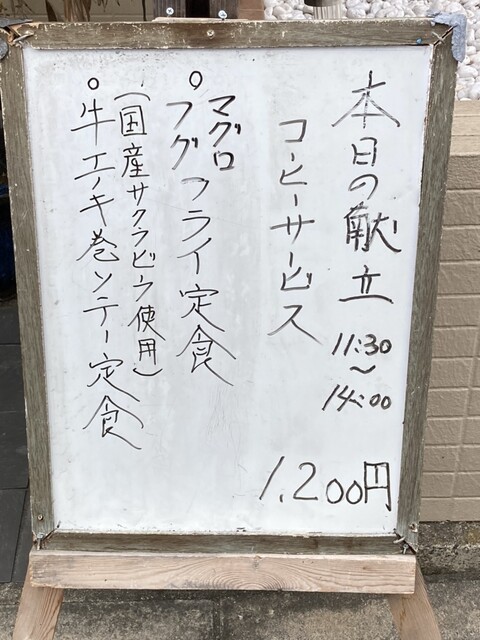 本日の献立
11:30
〜
14:00
コーヒーサービス
1,200円
○マグロ
フグ フライ定食
(国産サクラビーフ使用)
○牛エノキ巻ソテー定食